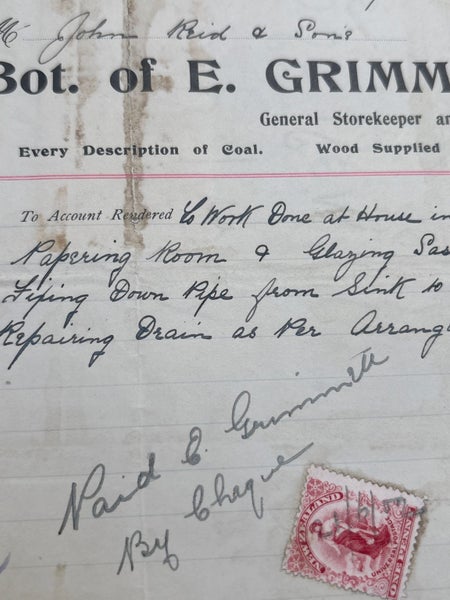 Mr John Reid & Son's
Bot. of E. GRIMM
General Storekeeper an
Every Description of Coal. Wood Supplied
To Account Rendered To Work Done at House in
Papering Room & Glazing Sas
Fixing Down Pipe from Sink to
Repairing Drain as Per Arrang
Paid E. Grimmett
By Cheque
NEW ZEALAND
UNIVERSAL POSTAGE
ONE PENNY